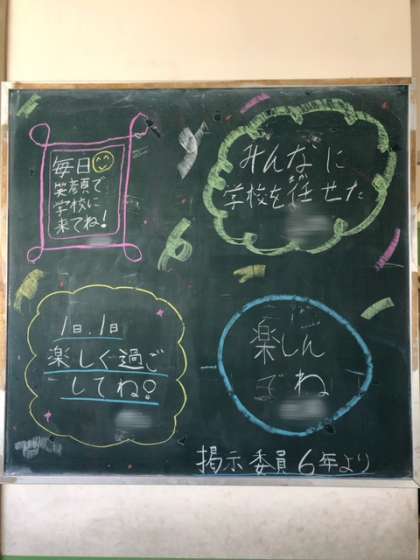 毎日
笑顔で
学校に
来てね!
みんなに
学校を任せた
1日、1日
楽しく過ご
してね!
楽しん
でね
掲示委員6年より